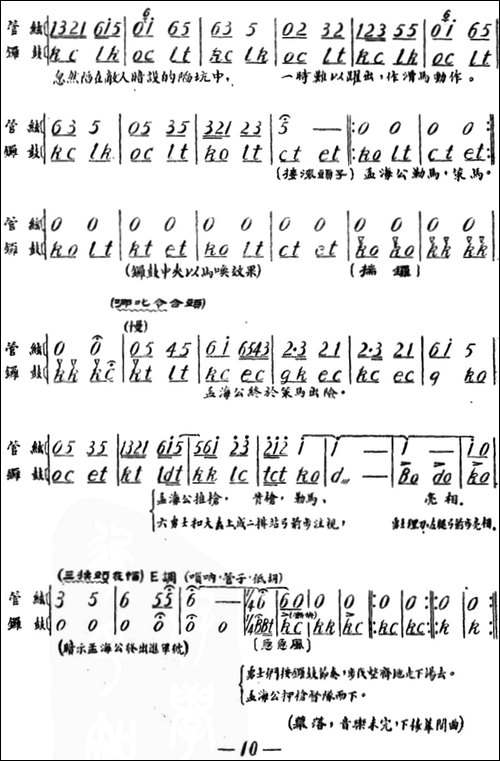 管絃 1321 615 | 0i 65 | 63 5 | 02 32 | 123 55 | 0i 65
鑼鼓 kc lk | oc lt | kc lk | oc lt | kc lk | oc lt
忽然陷在敵人暗設的陷坑中，一時難以躍出，作滑馬動作。
管絃 63 5 | 05 35 | 321 23 | 5 — ‖: 0 0 | 0 0 :‖
鑼鼓 kc lk | oc lt | ko lt | ct et ‖: ko lt | ct et :‖
(接滾頭子) 孟海公勒馬，策馬。
管絃 0 0 | 0 0 | 0 0 | 0 0 | 0 0 | 0 0
鑼鼓 ko lt | kt et | ko lt | ct et | ko ko | kk kk
(鑼鼓中夾以馬嘶效果)
(哪吒令合頭)
(慢)
管絃 0 0 | 05 45 | 6i 6543 | 2·3 21 | 2·3 21 | 6i 5
鑼鼓 kk kc | kt lt | kc ec | gk ec | kc ec | g ko
孟海公終於策馬出險。
管絃 05 35 | 1321 615 | 56i 23 | 212 i | i — | i — | i0
鑼鼓 oc et | kt ldt | kk lc | tct ko | d — | Bo do | ko
孟海公拖槍，背槍，勒馬，亮相。
六勇士和大纛上成二排站弓箭步注視，
(三換頭夜帽) E調 (嗩吶·管子·低調)
管絃 3 5 | 6 55 | 6 — | 1/4 6 | 60 | 0 | 0 ‖: 0 | 0 :‖: 0 :‖
鑼鼓 0 0 | 0 0 | 0 0 | 1/4 BBt | kc | kk | kc ‖: kc | kc :‖: k :‖
(暗示孟海公終出進軍號)
(急急風)
勇士們按鑼鼓節奏，步伐整齊地走下場去。
孟海公押槍督隊而下。
(幕落，音樂未完，下接幕間曲)
—10—